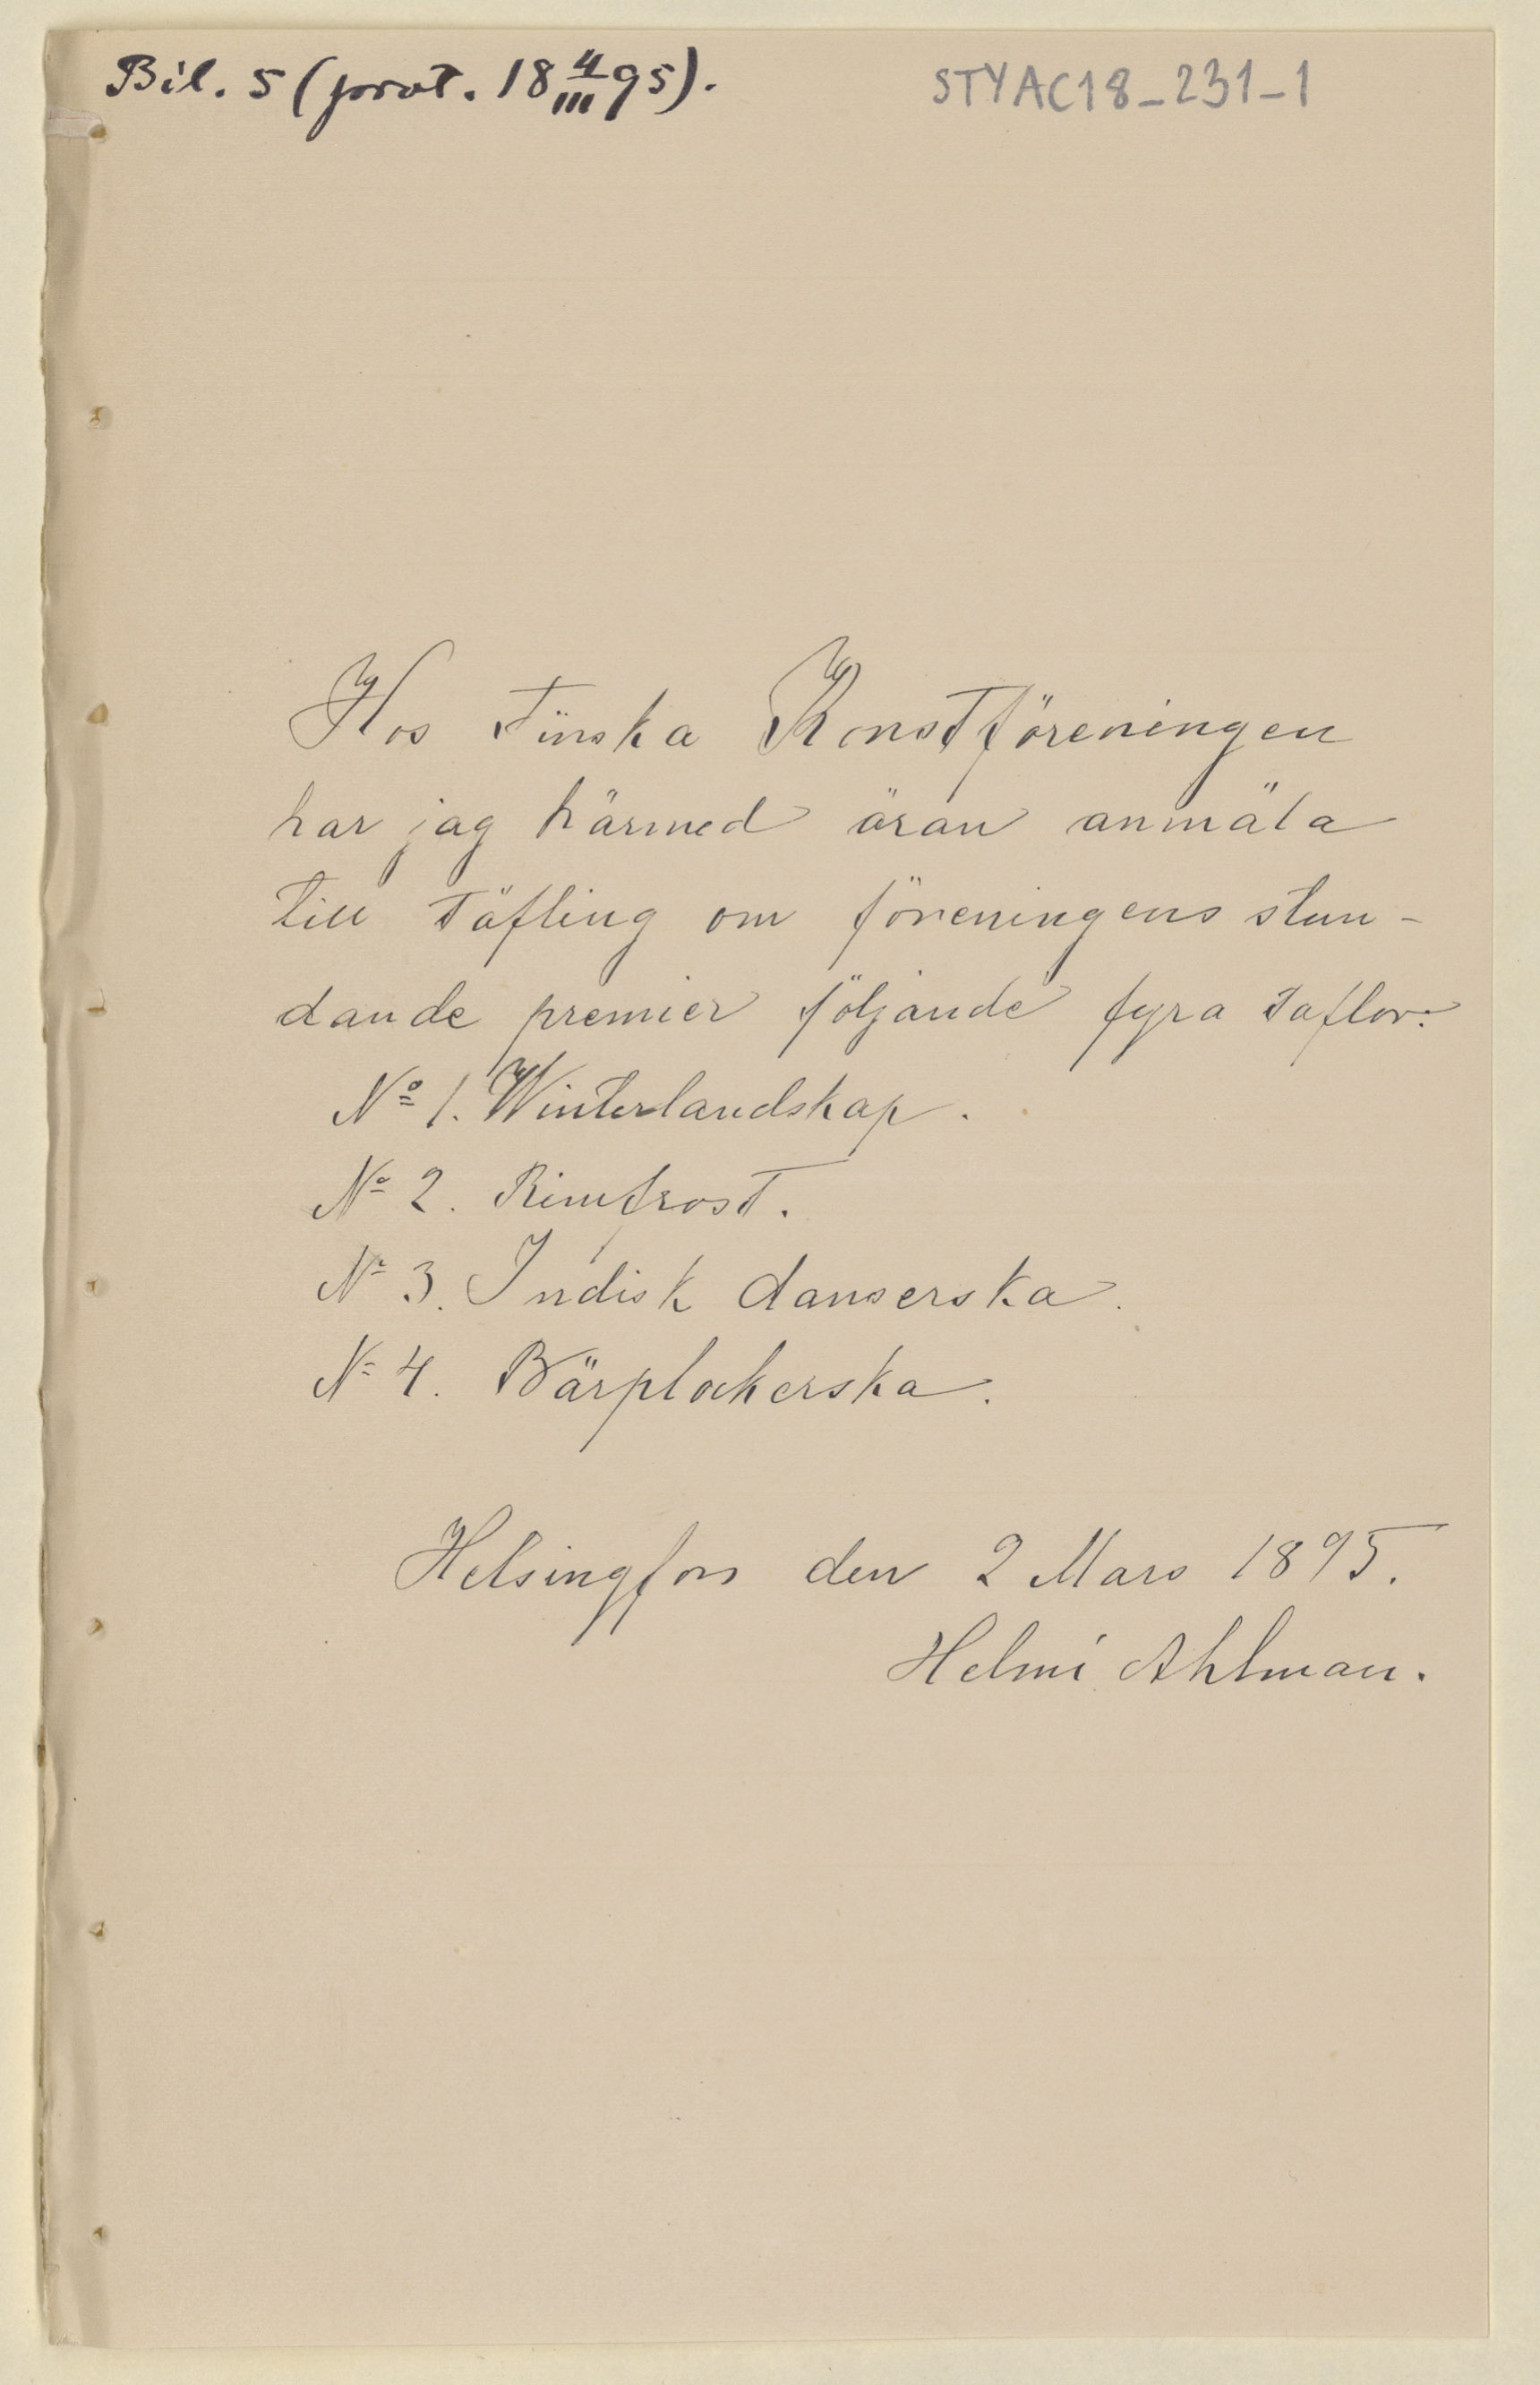 Bil. 5 (prot. 18 4/III 95).
STYAC18_231_1
Hos Finska Konstföreningen
har jag härmed äran anmäla
till täfling om föreningens stun-
dande premier följande fyra taflor:
No 1. Winterlandskap.
No 2. Rimfrost.
No 3. Indisk danserska.
No 4. Bärplockerska.
Helsingfors den 2 Mars 1895.
Helmi Ahlman.